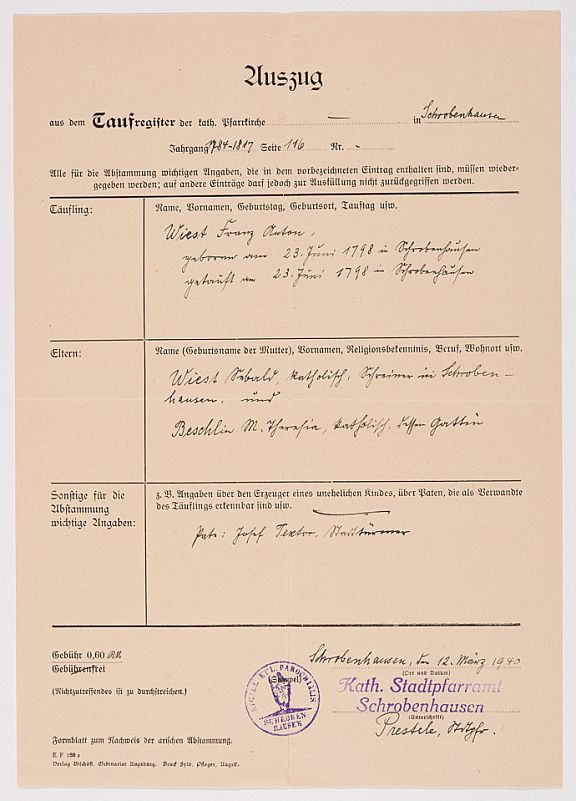 Auszug
aus dem Taufregister der kath. Pfarrkirche — in Schrobenhausen
Jahrgang 1784-1817 Seite 116 Nr. -
Alle für die Abstammung wichtigen Angaben, die in dem vorbezeichneten Eintrag enthalten sind, müssen wieder-
gegeben werden; auf andere Einträge darf jedoch zur Ausfüllung nicht zurückgegriffen werden.
Täufling:
Name, Vornamen, Geburtstag, Geburtsort, Tauftag usw.
Wiest Franz Anton,
geboren am 23. Juni 1798 in Schrobenhausen
getauft am 23. Juni 1798 in Schrobenhausen
Eltern:
Name (Geburtsname der Mutter), Vornamen, Religionsbekenntnis, Beruf, Wohnort usw.
Wiest Sebald, katholisch, Schreiner in Schroben-
hausen, und
Beschlin M. Theresia, katholisch, dessen Gattin
Sonstige für die
Abstammung
wichtige Angaben:
z. B. Angaben über den Erzeuger eines unehelichen Kindes, über Paten, die als Verwandte
des Täuflings erkennbar sind usw.
Pate: Josef Textor, Stadttürmer
Gebühr 0,60 RM
Gebührenfrei
(Nichtzutreffendes ist zu durchstreichen.)
Schrobenhausen, den 12. März 1940
(Ort und Datum)
(Stempel)
SCHROBEN
HAUSEN
Kath. Stadtpfarramt
Schrobenhausen
(Unterschrift)
Prestele, Stdtpfr.
Formblatt zum Nachweis der arischen Abstammung.
E. F 158 a
Verlag Bischöfl. Ordinariat Augsburg. Druck Sylv. Pfleger, Augsb.